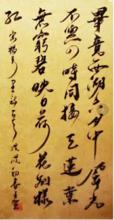 畢竟西湖六月中風光
不與四時同接天蓮葉
無窮碧映日荷花別樣
紅